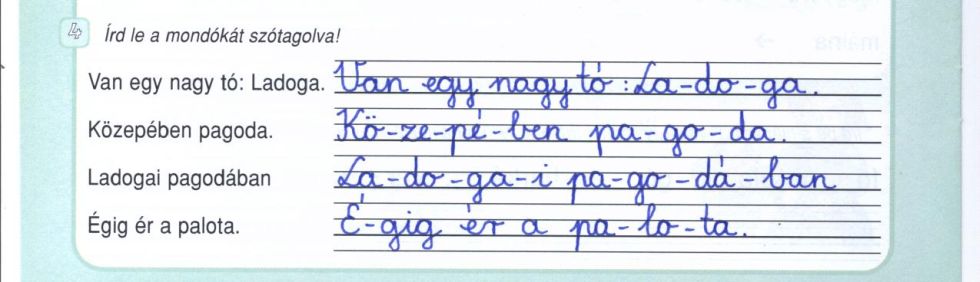 4 Írd le a mondókát szótagolva!
Van egy nagy tó: Ladoga. Van egy nagy tó: La-do-ga.
Közepében pagoda. Kö-ze-pé-ben pa-go-da.
Ladogai pagodában La-do-ga-i pa-go-dá-ban
Égig ér a palota. É-gig ér a pa-lo-ta.